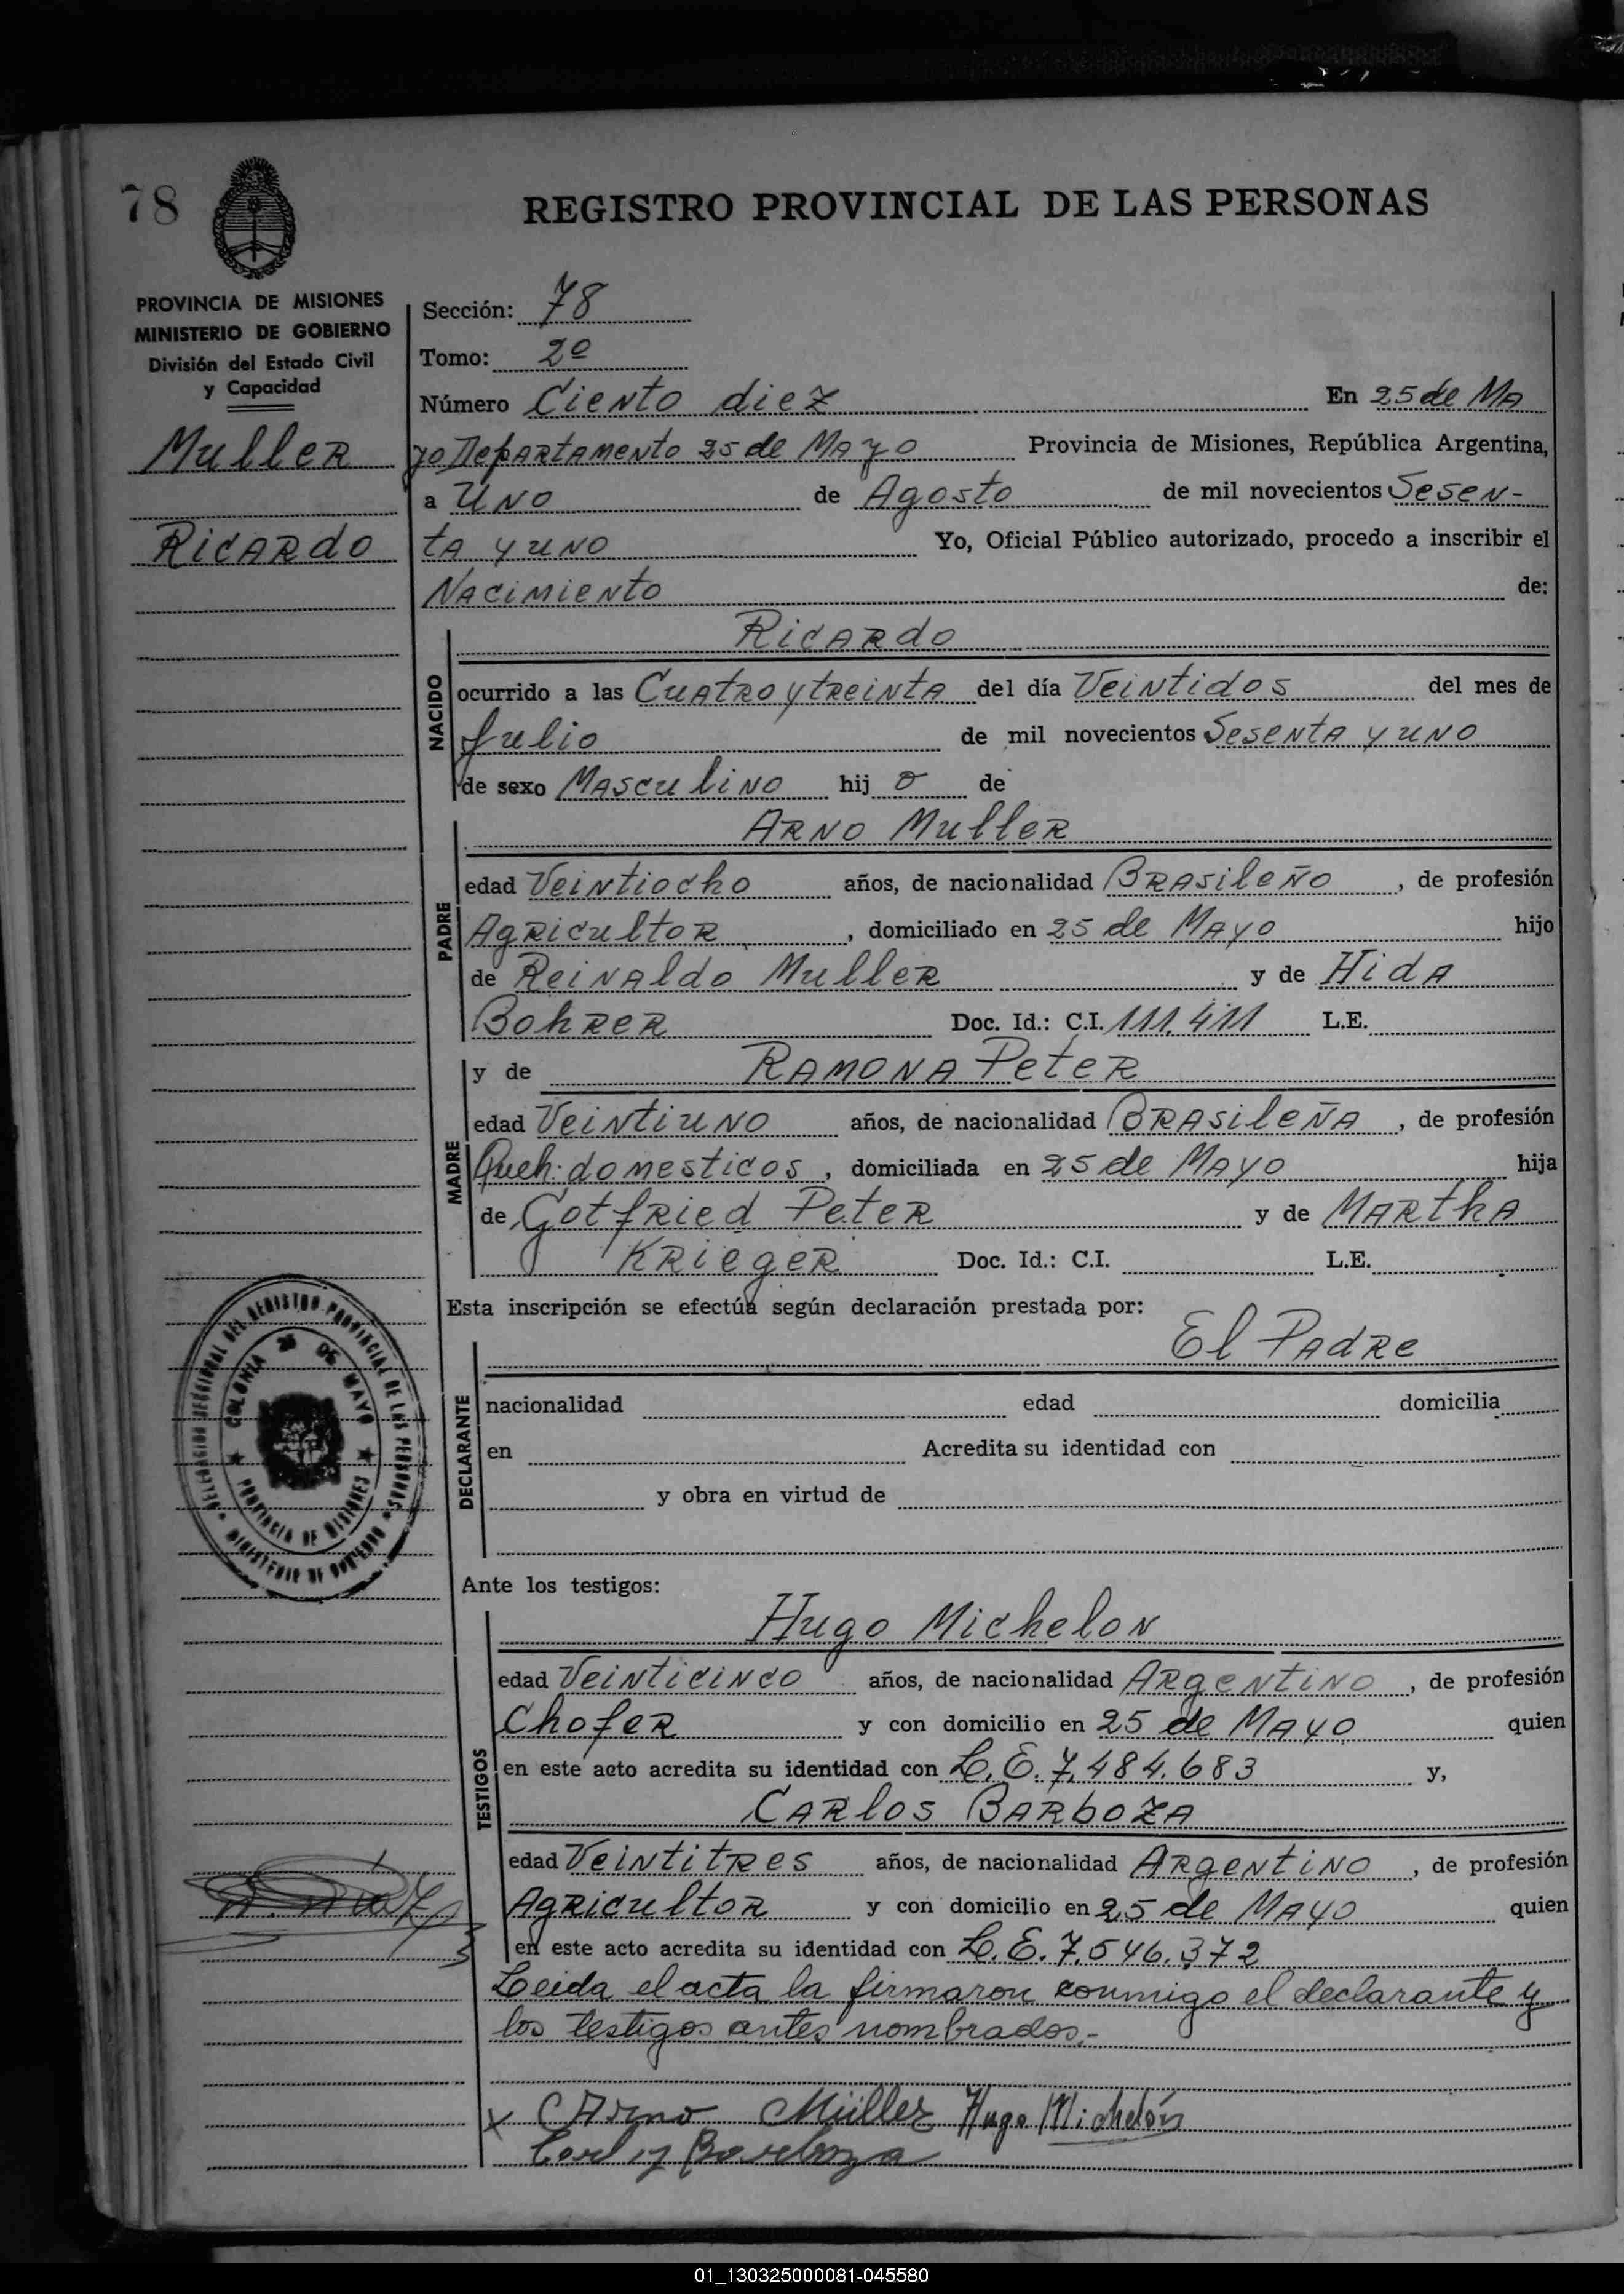 78
REGISTRO PROVINCIAL DE LAS PERSONAS
PROVINCIA DE MISIONES
MINISTERIO DE GOBIERNO
División del Estado Civil
y Capacidad
Muller
Ricardo
Sección: 78
Tomo: 2º
Número Ciento diez En 25 de Ma
yo Departamento 25 de Mayo Provincia de Misiones, República Argentina,
a Uno de Agosto de mil novecientos Sesen-
ta y uno Yo, Oficial Público autorizado, procedo a inscribir el
Nacimiento de:
NACIDO
Ricardo
ocurrido a las Cuatro y treinta del día Veintidos del mes de
Julio de mil novecientos Sesenta y uno
de sexo Masculino hij o de
PADRE
Arno Muller
edad Veintiocho años, de nacionalidad Brasileño, de profesión
Agricultor, domiciliado en 25 de Mayo hijo
de Reinaldo Muller y de Hida
Bohrer Doc. Id.: C.I. 111.411 L.E.
MADRE
y de Ramona Peter
edad Veintiuno años, de nacionalidad Brasileña, de profesión
Queh. domesticos, domiciliada en 25 de Mayo hija
de Gotfried Peter y de Martha
Krieger Doc. Id.: C.I. L.E.
Esta inscripción se efectúa según declaración prestada por:
DECLARANTE
El Padre
nacionalidad edad domicilia
en Acredita su identidad con
y obra en virtud de
DELEGACION SECCIONAL DEL REGISTRO PROVINCIAL DE LAS PERSONAS
MINISTERIO DE GOBIERNO
COLONIA 25 DE MAYO
PROVINCIA DE MISIONES
Ante los testigos:
TESTIGOS
Hugo Michelon
edad Veinticinco años, de nacionalidad Argentino, de profesión
Chofer y con domicilio en 25 de Mayo quien
en este acto acredita su identidad con L.E. 7.484.683 y,
Carlos Barboza
edad Veintitres años, de nacionalidad Argentino, de profesión
Agricultor y con domicilio en 25 de Mayo quien
en este acto acredita su identidad con L.E. 7.546.372
Leida el acta la firmaron conmigo el declarante y
los testigos antes nombrados.-
x Arno Müller Hugo Michelón
Carlos Barboza
01_130325000081-045580